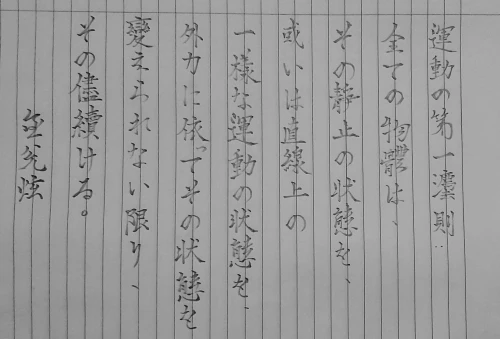 運動の第一運則：
全ての物體は、
その靜止の状態を、
或いは直線上の
一樣な運動の状態を、
外力に依ってその状態を
變えられない限り、
その儘續ける。